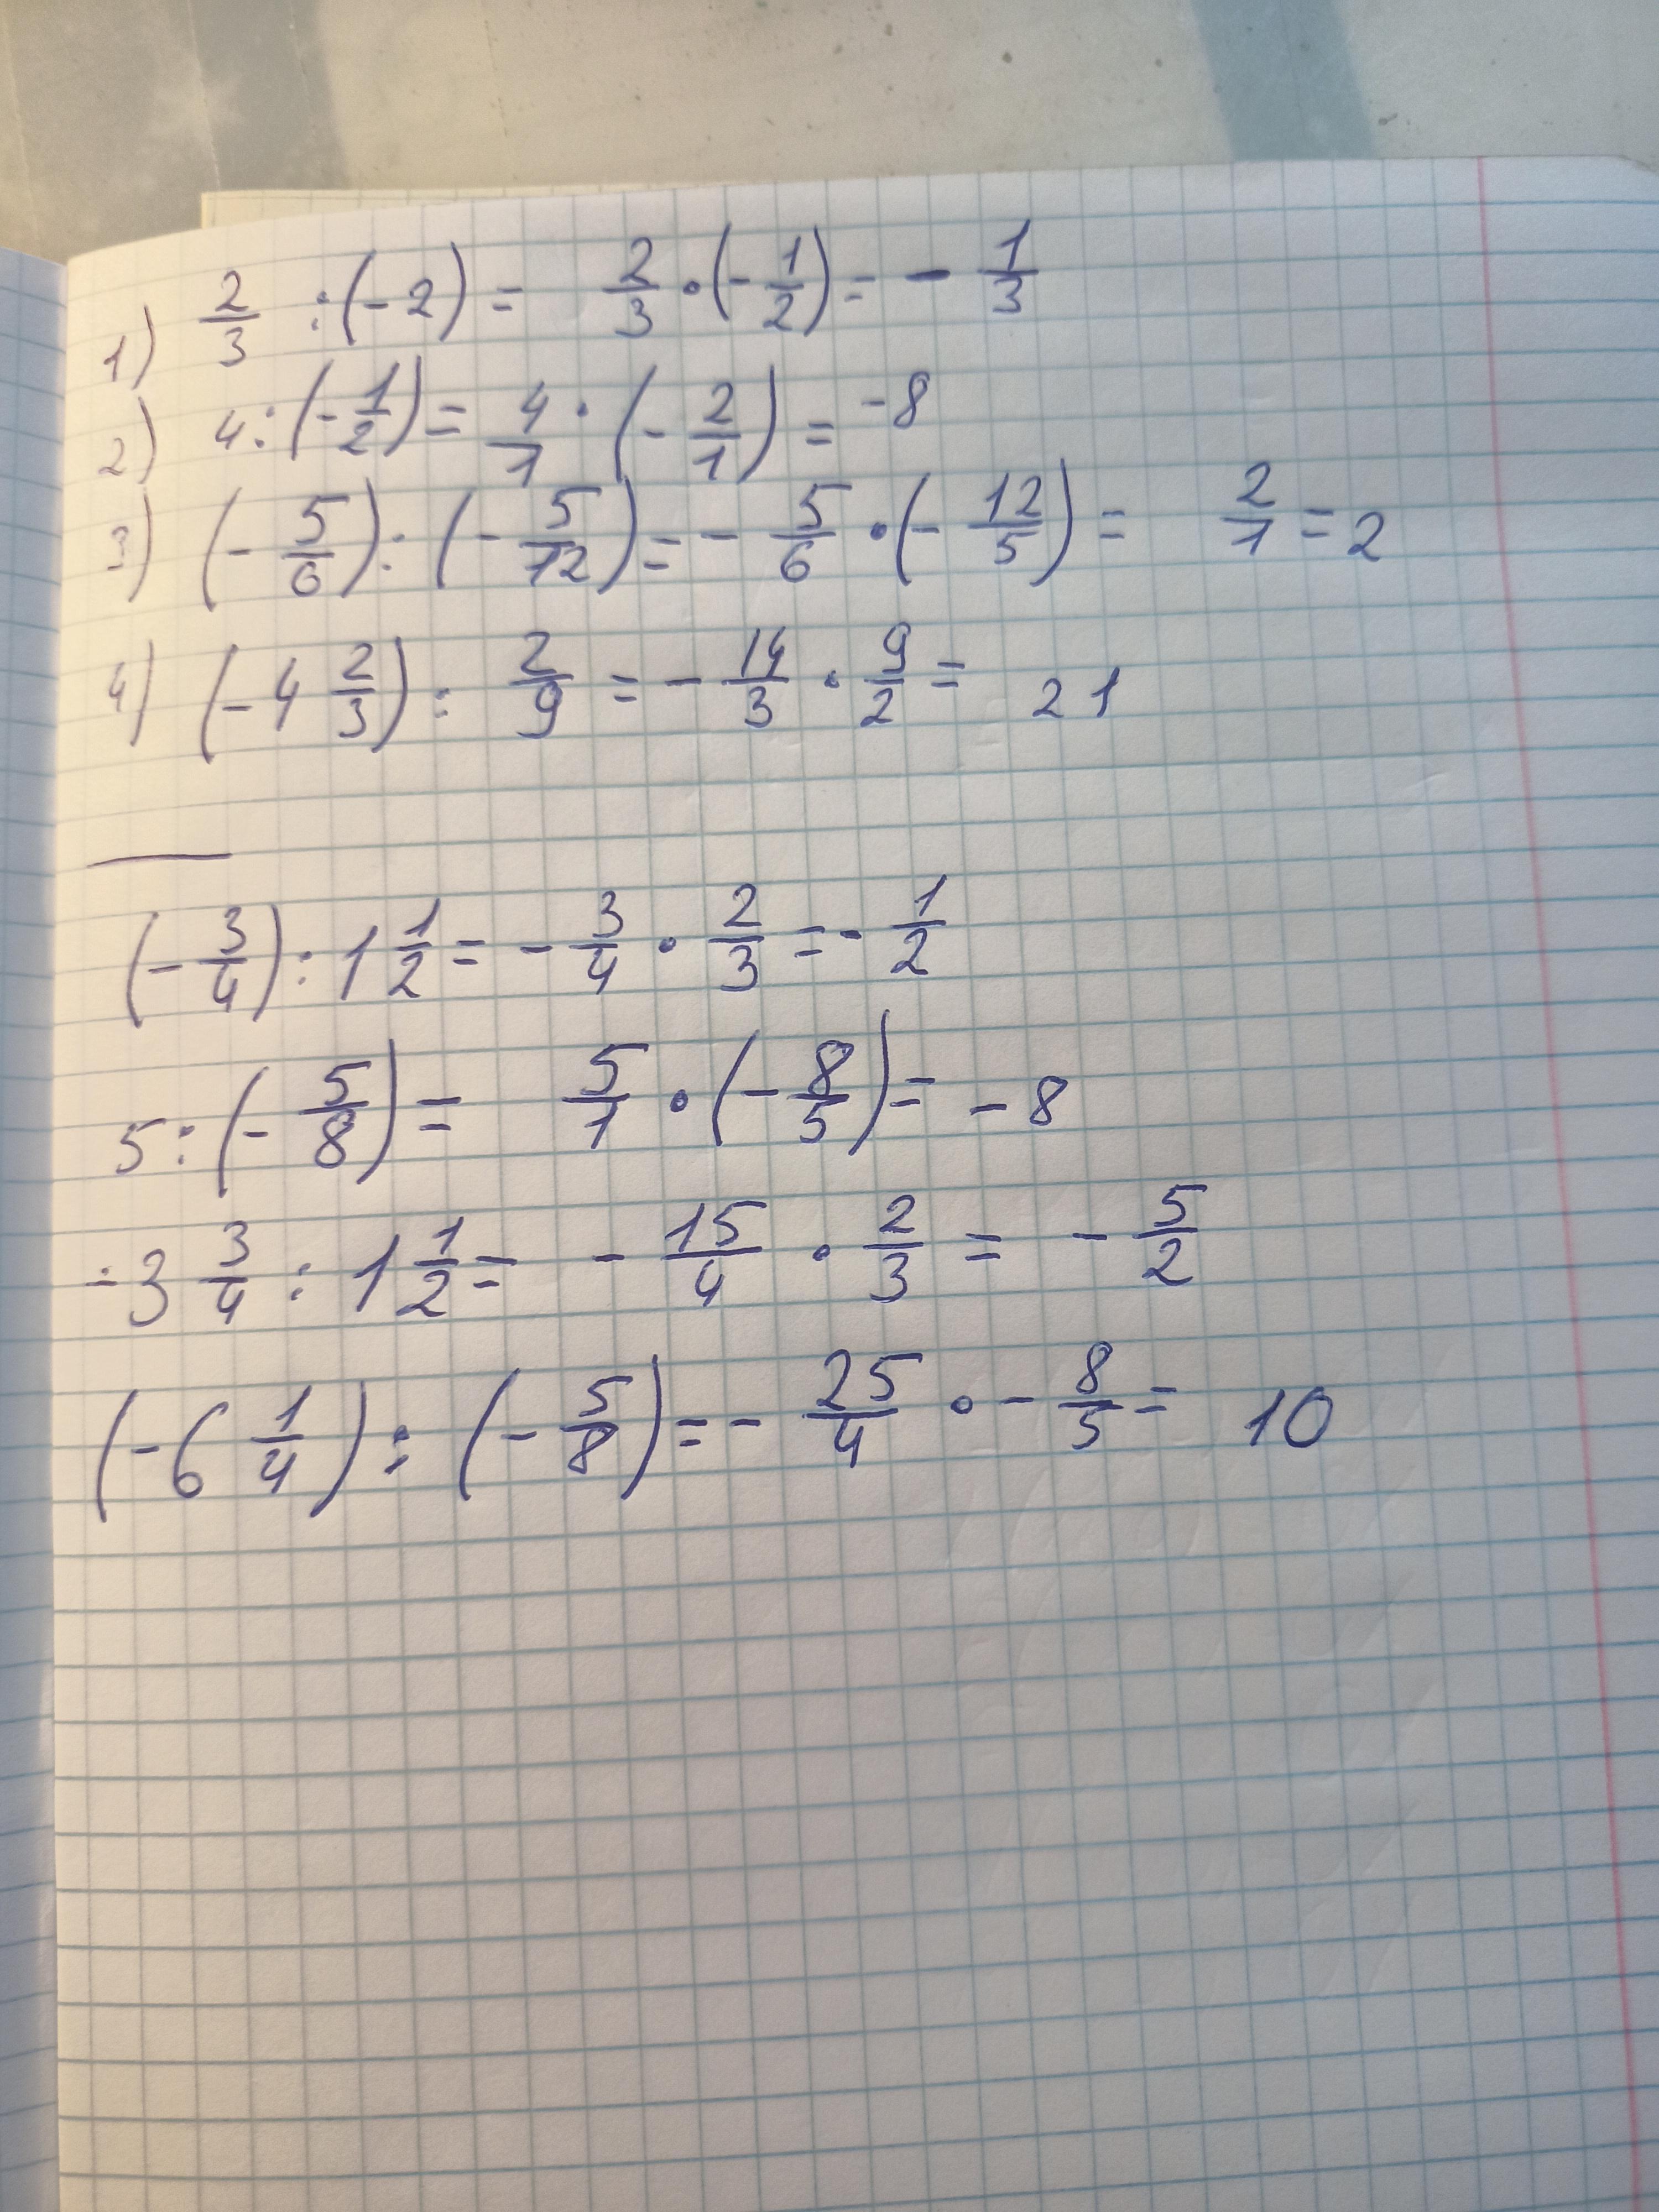 1) 2/3 : (-2) = 2/3 · (-1/2) = - 1/3
2) 4 : (-1/2) = 4/1 · (-2/1) = -8
3) (-5/6) : (-5/12) = - 5/6 · (-12/5) = 2/1 = 2
4) (-4 2/3) : 2/9 = - 14/3 · 9/2 = 21
(-3/4) : 1 1/2 = - 3/4 · 2/3 = - 1/2
5 : (-5/8) = 5/1 · (-8/5) = -8
-3 3/4 : 1 1/2 = - 15/4 · 2/3 = - 5/2
(-6 1/4) : (-5/8) = - 25/4 · - 8/5 = 10